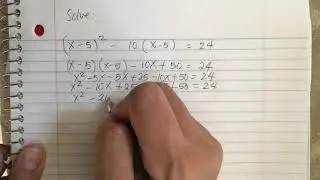 Solve:
(x-5)² - 10(x-5) = 24
(x-5)(x-5) - 10x + 50 = 24
x² - 5x - 5x + 25 - 10x + 50 = 24
x² - 10x + 25 + 50 = 24
x² - 2